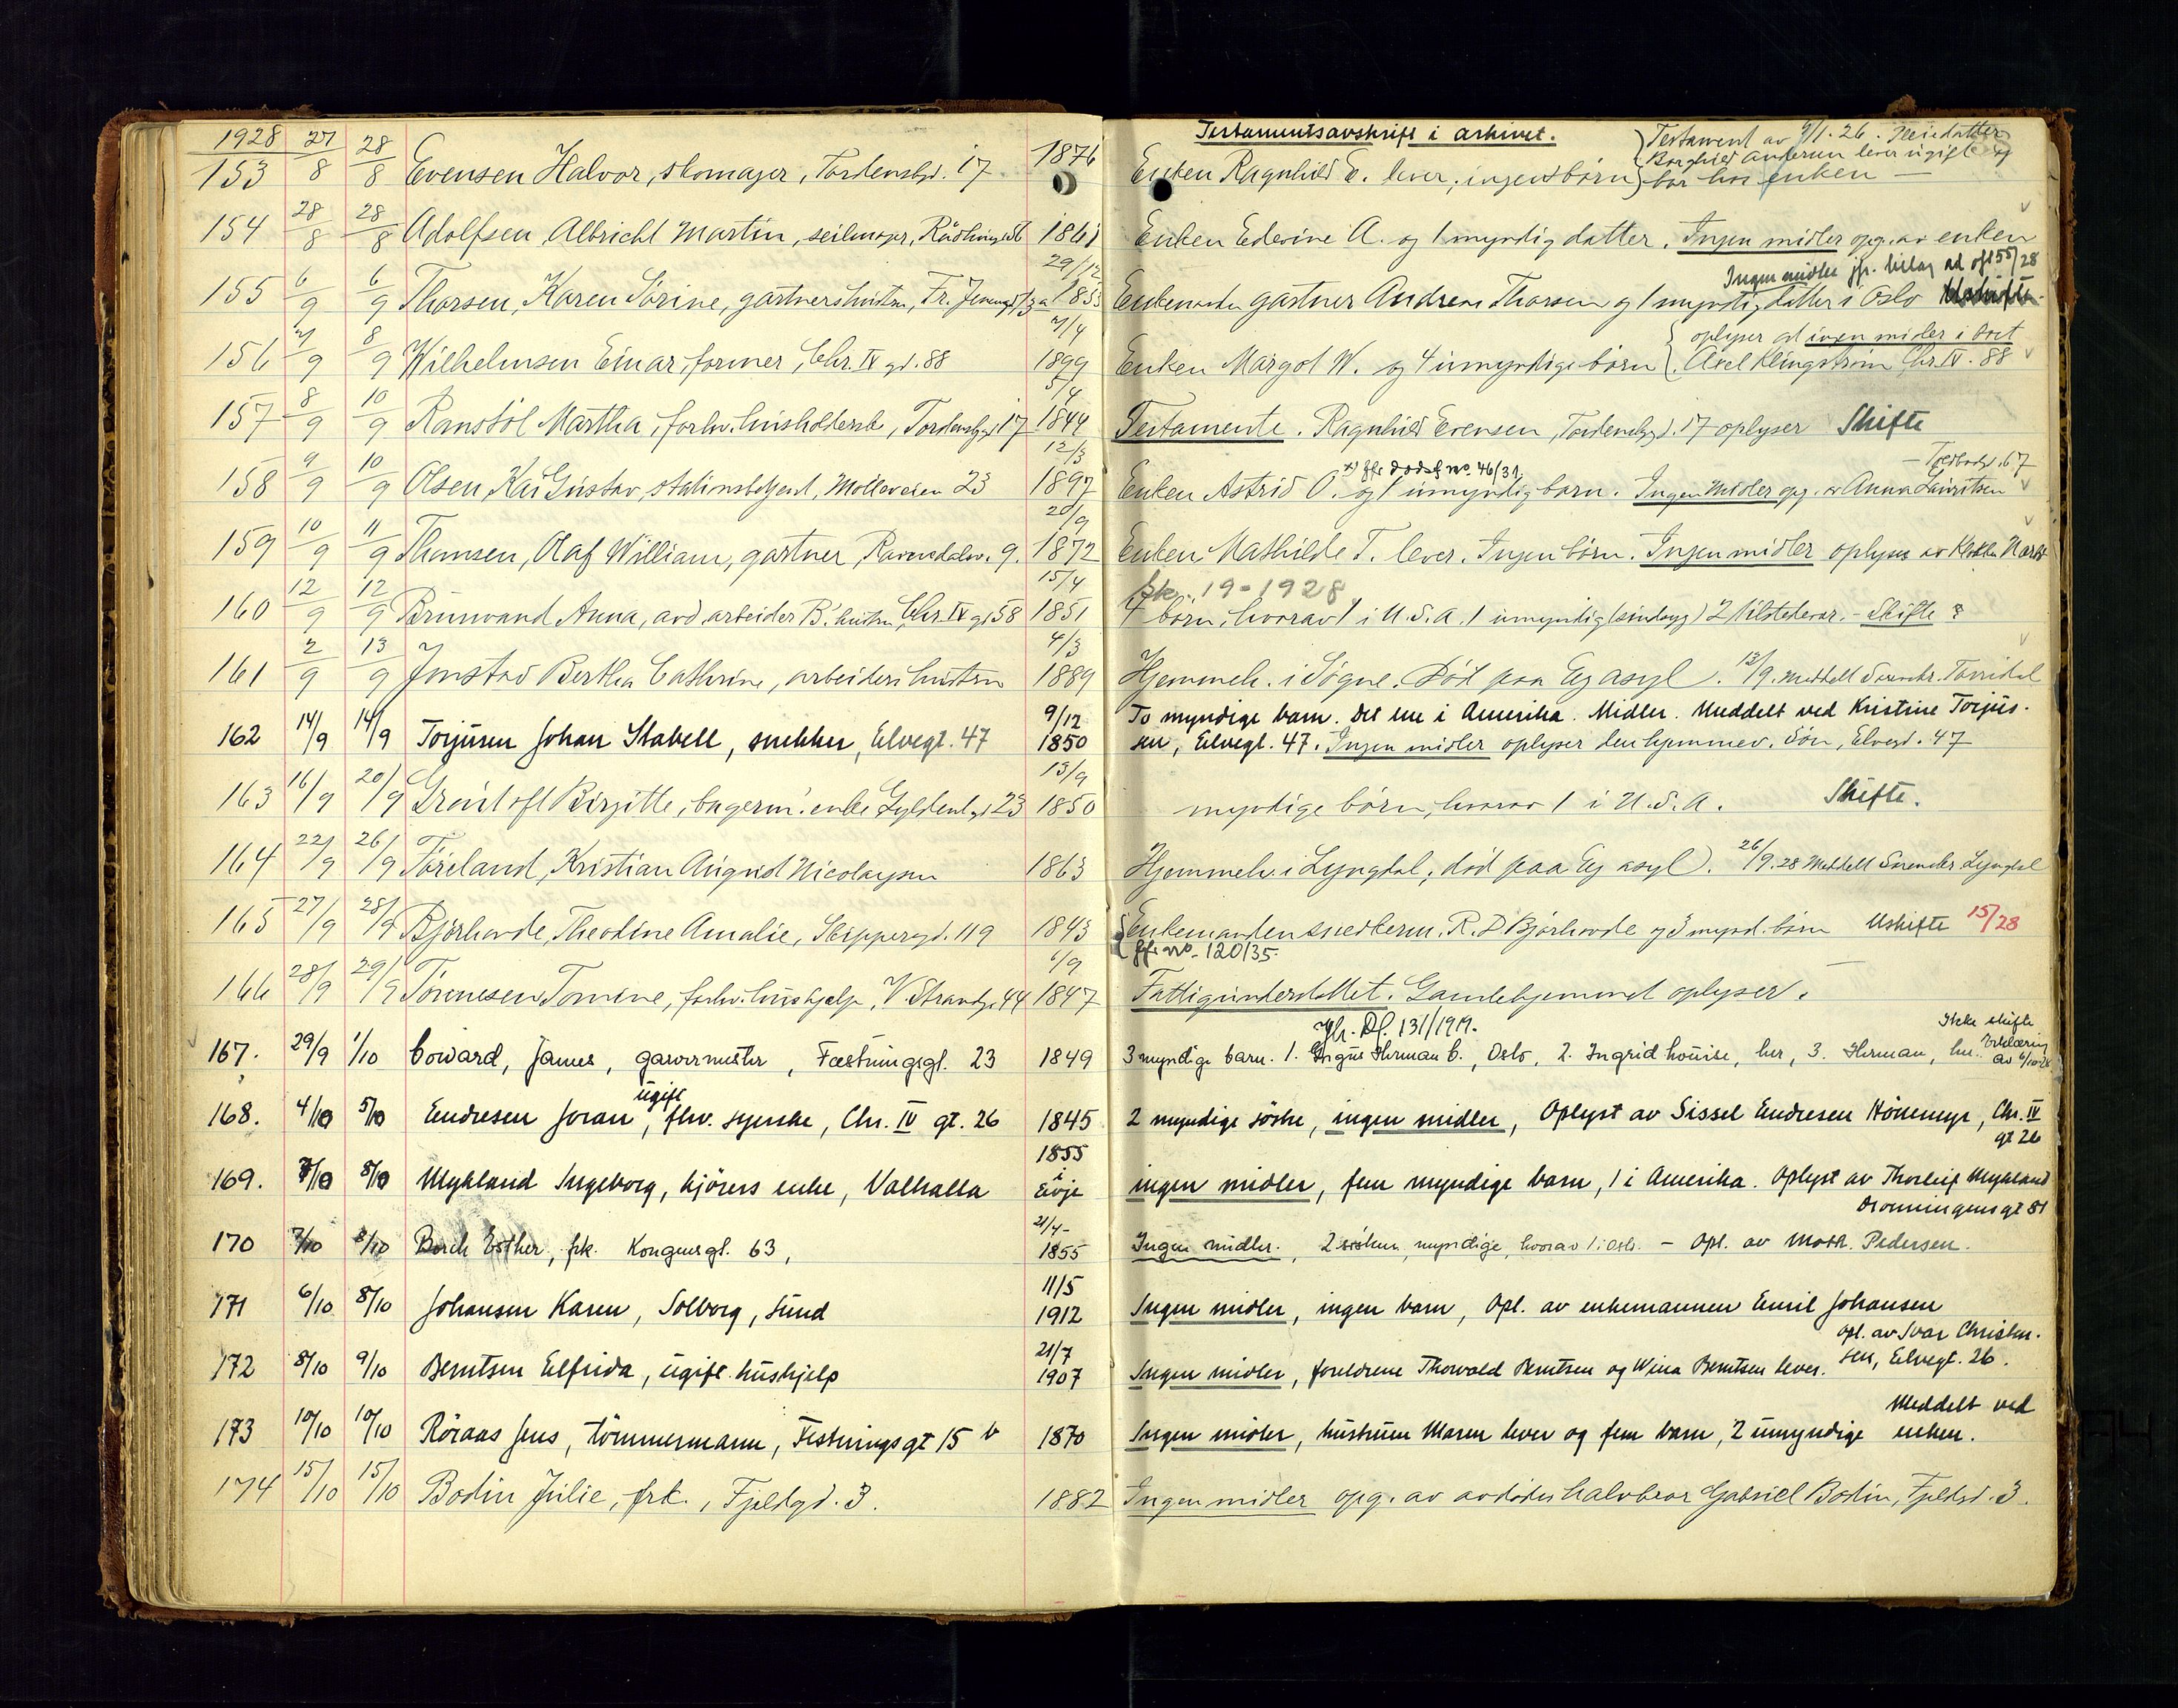 Testamentsavskrift i arkivet.
1928 27/8 28/8 1876 Testament av 9/1.26. Pleiedatter
153 Evensen Halvor, skomager, Tordenskjgd. 17 Enken Ragnhild E. lever, ingen børn Borghild Andersen lever ugift og
bor hos enken —
154 28/8 28/8 Adolfsen, Albricht Martin, seilmager, 1861 Enken Ederine A. og 1 myndig datter. Ingen midler opg. av enken
29/12 Ingen midler jfr. bilag ad 55/28
155 6/9 6/9 Thorsen, Karen Sørine, gartners hustru, 1853 Enkemanden gartner Andreas Thorsen og 1 myndig datter i Oslo
7/4 oplyser at ingen midler i boet
156 7/9 8/9 Wilhelmsen Einar, former, Chr. IV gd. 88 1899 Enken Margot W. og 4 umyndige børn Axel Klingstrøm Chr. IV. 88
5/4
157 8/9 10/9 Ranstøl Martha, forhv. husholderske, Tordenskjgd 17 1844 Testamente. Ragnhild Evensen, Tordenskjgd. 17 oplyser Skifte
12/3 x) jfr dødsf no. 46/31. — Toldbodgd. 67
158 9/9 10/9 Olsen, Kai Gustav, stationsbetjent, Mølleveien 23 1897 Enken Astrid O. og 1 umyndig barn. Ingen midler opg. av Anna Lauritsen
20/9
159 10/9 11/9 Thomsen, Olaf William, gartner, Ravnedalsv. 9. 1872 Enken Mathilde T. lever. Ingen børn. Ingen midler oplyses av
15/4 19-1928
160 12/9 12/9 Brunvand Anna, avd. arbeider B.' hustru, Chr. IV gd 58 1851 4 børn, hvorav 1 i U.S.A. 1 umyndig (sindssyg) 2 tilstedevær. - Skifte ?
4/3
161 2/9 13/9 Jonstad Bertha Cathrine, arbeiders hustru 1889 Hjemmeh. i Søgne. Død paa Eg asyl. 13/9. Meddelt Sorenskr. Torridal
9/12 To myndige barn. Det ene i Amerika. Midler. Meddelt ved Kristine Torjus-
162 14/9 14/9 Torjusen Johan Stabell, snekker, Elvegt. 47 1850 sen, Elvegt. 47. Ingen midler oplyser den hjemmev. søn, Elvegd. 47
13/9
163 16/9 20/9 Birgitte, bagerm.' enke Gyldenlgd 23 1850 myndige børn, hvorav 1 i U.S.A. Skifte.
164 22/9 26/9 Tøreland, Kristian August Nicolaysen 1863 Hjemmeh. i Lyngdal, død paa Eg asyl. 26/9.28 Meddelt Sorenskr. Lyngdal
165 27/9 28/9 Bjørhovde, Theodine Amalie, Skippergd. 119 1843 Enkemanden snedkerm. R. D. Bjørhovde og 3 mynd. børn Uskifte 15/28
6/9 jfr. no. 120/35.
166 28/9 29/9 Tønnesen Tomine, forhv. hushjelp, V. Strandg. 44 1847 Fattigunderstøttet. Gamlehjemmet oplyser.
Jfr. Df. 131/1919. Ikke skifte
167. 29/9 1/10 Coward, James, garvermester, Fæstningsgt. 23 1849 3 myndige barn. 1. Ingus Herman C., Oslo, 2. Ingrid Louise, her, 3. Herman, her. Erklæring av 6/10-28
168. 4/10 5/10 Endresen Joran, ugift fhv. syerske, Chr. IV gt. 26 1845 2 myndige søstre, ingen midler, Oplyst av Sissel Endresen Hønemyr, Chr. IV
gt 26
1855
169. 7/10 8/10 Mykland Ingeborg, kjørers enke, Valhalla i Eivje ingen midler, fem myndige barn, 1 i Amerika. Oplyst av Thorleif Mykland
Dronningensgt 81
21/4-
170 7/10 8/10 Borch Esther, frk. Kongensgt. 63, 1855 Ingen midler, 2 søsken, myndige, hvorav 1 i Oslo. - Opl. av Pedersen.
11/5
171 6/10 8/10 Johansen Karen, Solborg, Lund 1912 Ingen midler, ingen barn, Opl. av enkemannen Emil Johansen
21/7 Opl. av Ivar Christen-
172 8/10 9/10 Berntsen Elfrida, ugift hushjelp 1907 Ingen midler, foreldrene Thorvald Berntsen og Wina Berntsen lever. sen, Elvegt. 26.
Meddelt ved
173 10/10 10/10 Röraas Jens, tømmermann, Festningsgt 15 b 1870 Ingen midler, hustruen Maren lever og fem barn, 2 umyndige enken.
174 15/10 15/10 Bodin Julie, frk., Fjeldgd. 3. 1882 Ingen midler opg. av avdødes halvbror Gabriel Bodin, Fjeldgd. 3.